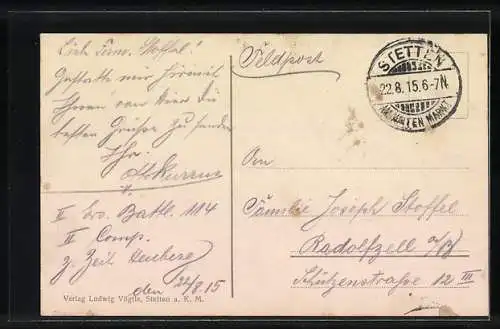 Lieb. Fam. Stoffel!
Gestatte mir hiermit
Ihnen von hier die
besten Grüße zu senden
Ihr.
II Ers. Battl. 114
II Comp.
z. Zeit
den 22/8.15
Verlag Ludwig Vögtle, Stetten a. K. M.
Feldpost
STETTEN
22.8.15.6-7N
KALTEN MARKT
An
Familie Joseph Stoffel
Radolfzell a/B
Schützenstraße 12 III